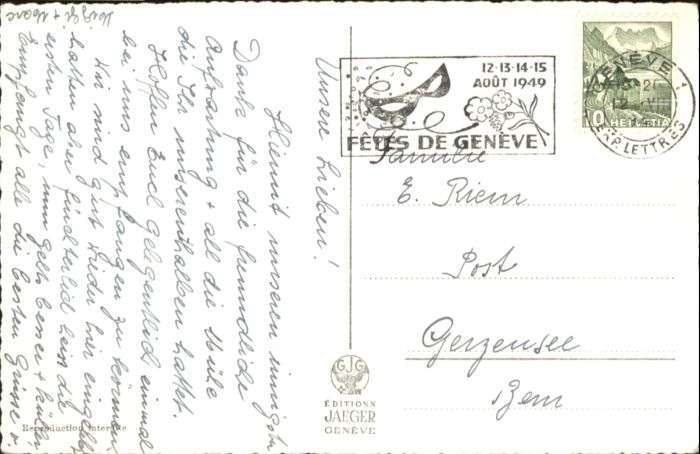 Unsere Lieben!
Hiermit unseren innigsten
Dank für die freundliche
Aufnahme + all die Mühe
die Ihr unserethalben hattet.
Hoffen Euch gelegentlich einmal
bei uns empfangen zu können.
Wir sind gut wieder hier
hatten aber
ersten Tage, nun gehts besser +
Empfangt alle die besten Grüsse v.
12-13-14-15
AOÛT 1949
FÊTES DE GENÈVE
GENÈVE 1
EXP. LETTRES
10 HELVETIA
Familie
E. Riem
Post
Gerzensee
Bern
GJG
ÉDITIONS
JAEGER
GENÈVE
Reproduction interdite